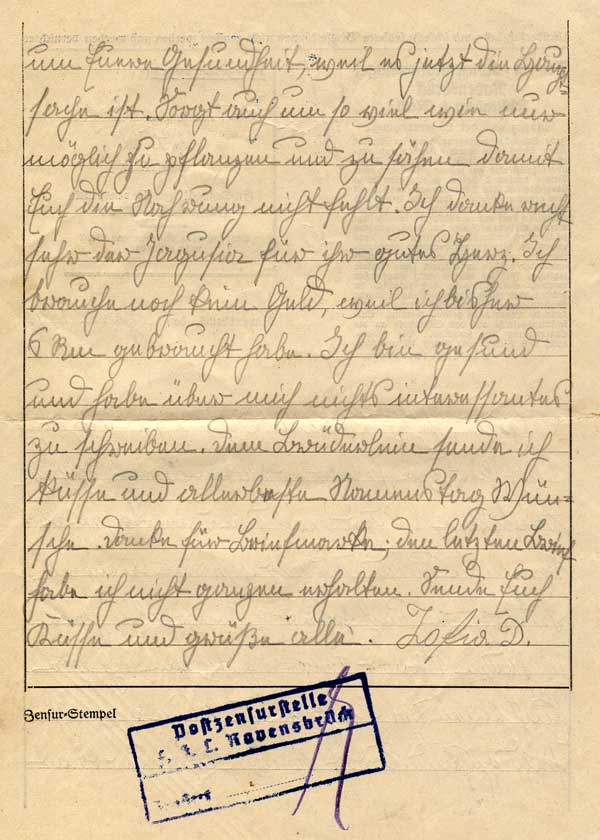 um Euere Gesundheit, weil es jetzt die Haupt-
sache ist. Sorgt auch um so viel wie nur
möglich zu pflanzen und zu sähen damit
Euch die Nahrung nicht fehlt. Ich danke recht
sehr der Jagusia für ihr gutes Herz. Ich
brauche noch kein Geld, weil ich bisher
6 Rm gebraucht habe. Ich bin gesund
und habe über mich nichts interessantes
zu schreiben. Dem Brüderlein sende ich
Küsse und allerbeste Namenstag Wün-
sche. Danke für Briefmarke; den letzten Brief
habe ich nicht ganzen erhalten. Sende Euch
Küsse und grüße alle. Zofia D.
Zensur-Stempel
Postzensurstelle
F. K. L. Ravensbrück